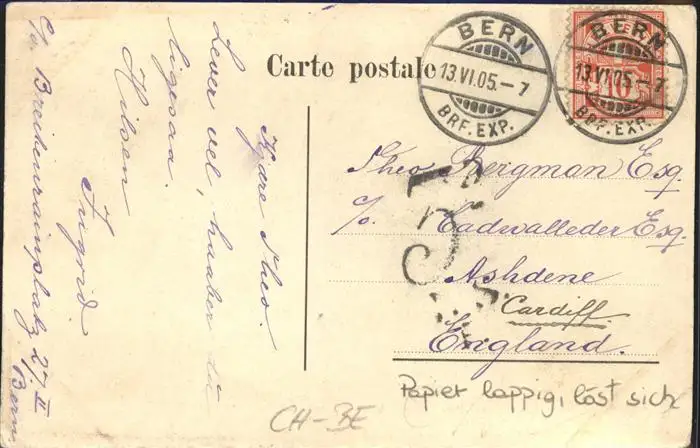 Carte postale
BERN
13.VI.05.–7
BRF. EXP.
BERN
13.VI.05.–7
BRF. EXP.
10
Kjære Theo.
Lever vel, haaber du
ligesaa.
Hilsen
Ingrid.
c/o Breitenrainplatz 27 II
Bern
Theo Bergman Esq
c/o Cadwalleder Esq.
Ashdene
Cardiff
England.
Papier lappig, löst sich
CH-BE